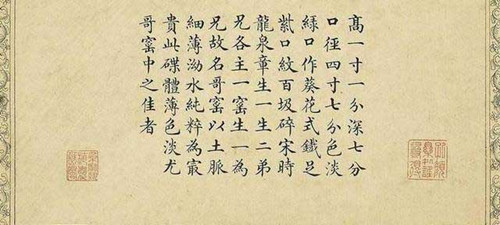 高一寸一分深七分
口徑四寸七分色淡
綠口作葵花式鐵足
紫口紋百圾碎宋時
龍泉章生一生二弟
兄各主一窰生一為
兄故名哥窰以土脈
細薄泑水純粹為㝡
貴此碟體薄色淡尤
哥窰中之佳者